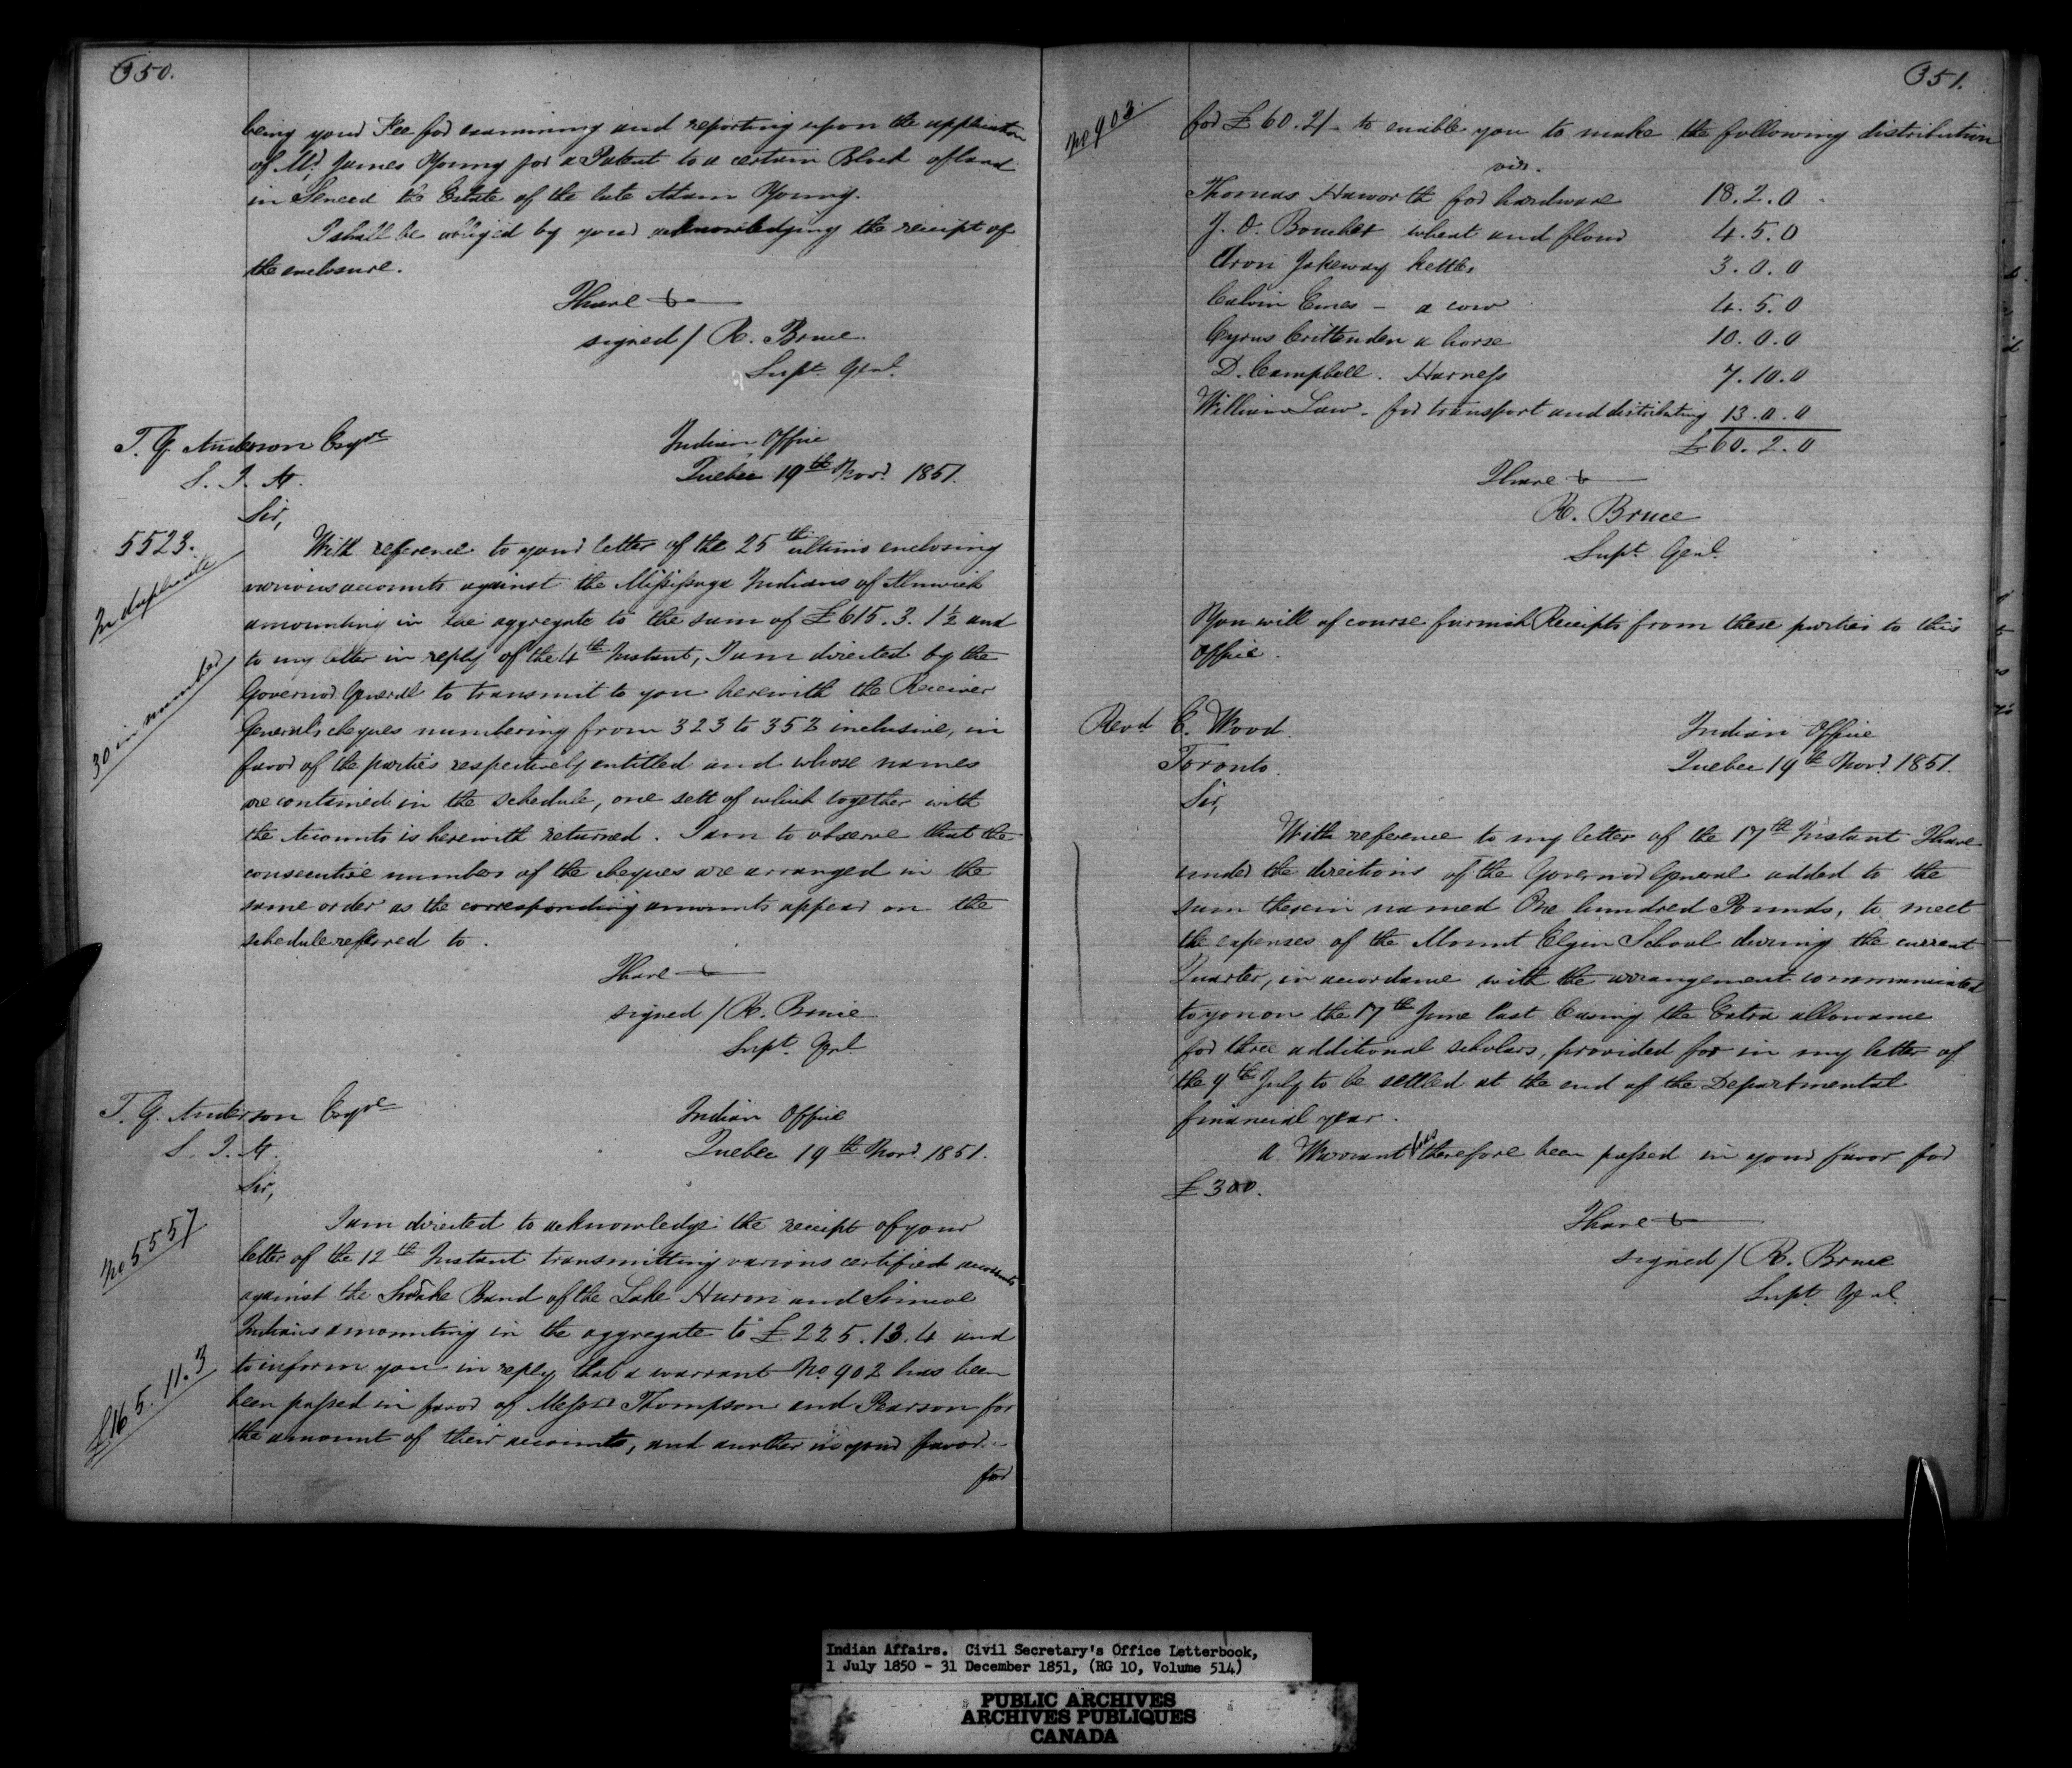 350.
being your Fee for examining and reporting upon the application
of Mr. James Young for a Patent to a certain Block of land
in Seneca the Estate of the late Adam Young.
I shall be obliged by your acknowledging the receipt of
the enclosure.
I have &
signed / R. Bruce.
Supt. Genl.
T. G. Anderson Esqre
S. I. A.
Indian Office
Quebec 19th Novr. 1851.
Sir,
5523.
In duplicate
30 in number
With reference to your letter of the 25th ultimo enclosing
various accounts against the Missisaga Indians of Alnwick
amounting in the aggregate to the sum of £615.3.1½ and
to my letter in reply of the 4th Instant, I am directed by the
Governor General to transmit to you herewith the Receiver
Generals cheques numbering from 323 to 352 inclusive, in
favor of the parties respectively entitled and whose names
are contained in the schedule, one sett of which together with
the Accounts is herewith returned. I am to observe that the
consecutive numbers of the cheques are arranged in the
same order as the corresponding amounts appear on the
schedule referred to.
I have &
signed / R. Bruce
Supt. Gnl.
T. G. Anderson Esqre
S. I. A.
Indian Office
Quebec 19th Novr. 1851.
Sir,
No 5557
£165.11.3
I am directed to acknowledge the receipt of your
letter of the 12th Instant transmitting various certified accounts
against the Snake Band of the Lake Huron and Simcoe
Indians amounting in the aggregate to £225.13.4 and
to inform you in reply that a warrant No. 902 has been
been passed in favor of Messrs Thompson and Pearson for
the amount of their accounts, and another in your favor
for
351.
No 903.
for £60.2/- to enable you to make the following distribution
viz.
Thomas Haworth for hardware 18.2.0
J. O. wheat and flour 4.5.0
Aron Jakeway kettles 3.0.0
Calvin Emes - a cow 4.5.0
Cyrus Crittenden a horse 10.0.0
D. Campbell. Harness 7.10.0
William Law - for transport and distributing 13.0.0
£60.2.0
I have &
R. Bruce
Supt. Genl.
You will of course furnish Receipts from these parties to this
Office.
Revd. E. Wood.
Toronto.
Indian Office
Quebec 19th Novr. 1851.
Sir,
With reference to my letter of the 17th Instant I have
under the directions of the Governor General added to the
sum therein named One hundred Pounds, to meet
the expenses of the Mount Elgin School during the current
Quarter, in accordance with the arrangement communicated
to you on the 17th June last leaving the Extra allowance
for three additional scholars, provided for in my letter of
the 9th July to be settled at the end of the Departmental
financial year.
A Warrant has therefore been passed in your favor for
£300.
I have &
signed / R. Bruce
Supt. Genl.
Indian Affairs. Civil Secretary's Office Letterbook,
1 July 1850 - 31 December 1851, (RG 10, Volume 514)
PUBLIC ARCHIVES
ARCHIVES PUBLIQUES
CANADA